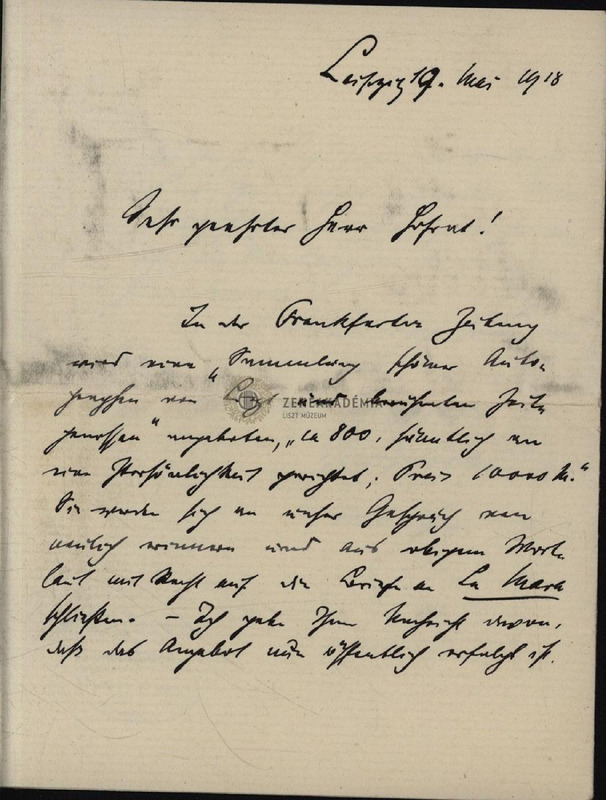 Leipzig 19. Mai 1918
Sehr geehrter Herr Hofrat!
In der Frankfurter Zeitung
wird eine „Sammlung schöner Auto-
graphen von Liszt und berühmten Zeit-
genossen" angeboten, „ca 800, sämtlich an
eine Persönlichkeit gerichtet; Preis 10000 M."
Sie werden sich an unser Gespräch von
neulich erinnern und aus obigem Wort-
laut mit Recht auf die Briefe an La Mara
schließen. – Ich gebe Ihnen Nachricht davon,
daß das Angebot nun öffentlich erfolgt ist.
ZENEAKADÉMIA
LISZT MÚZEUM